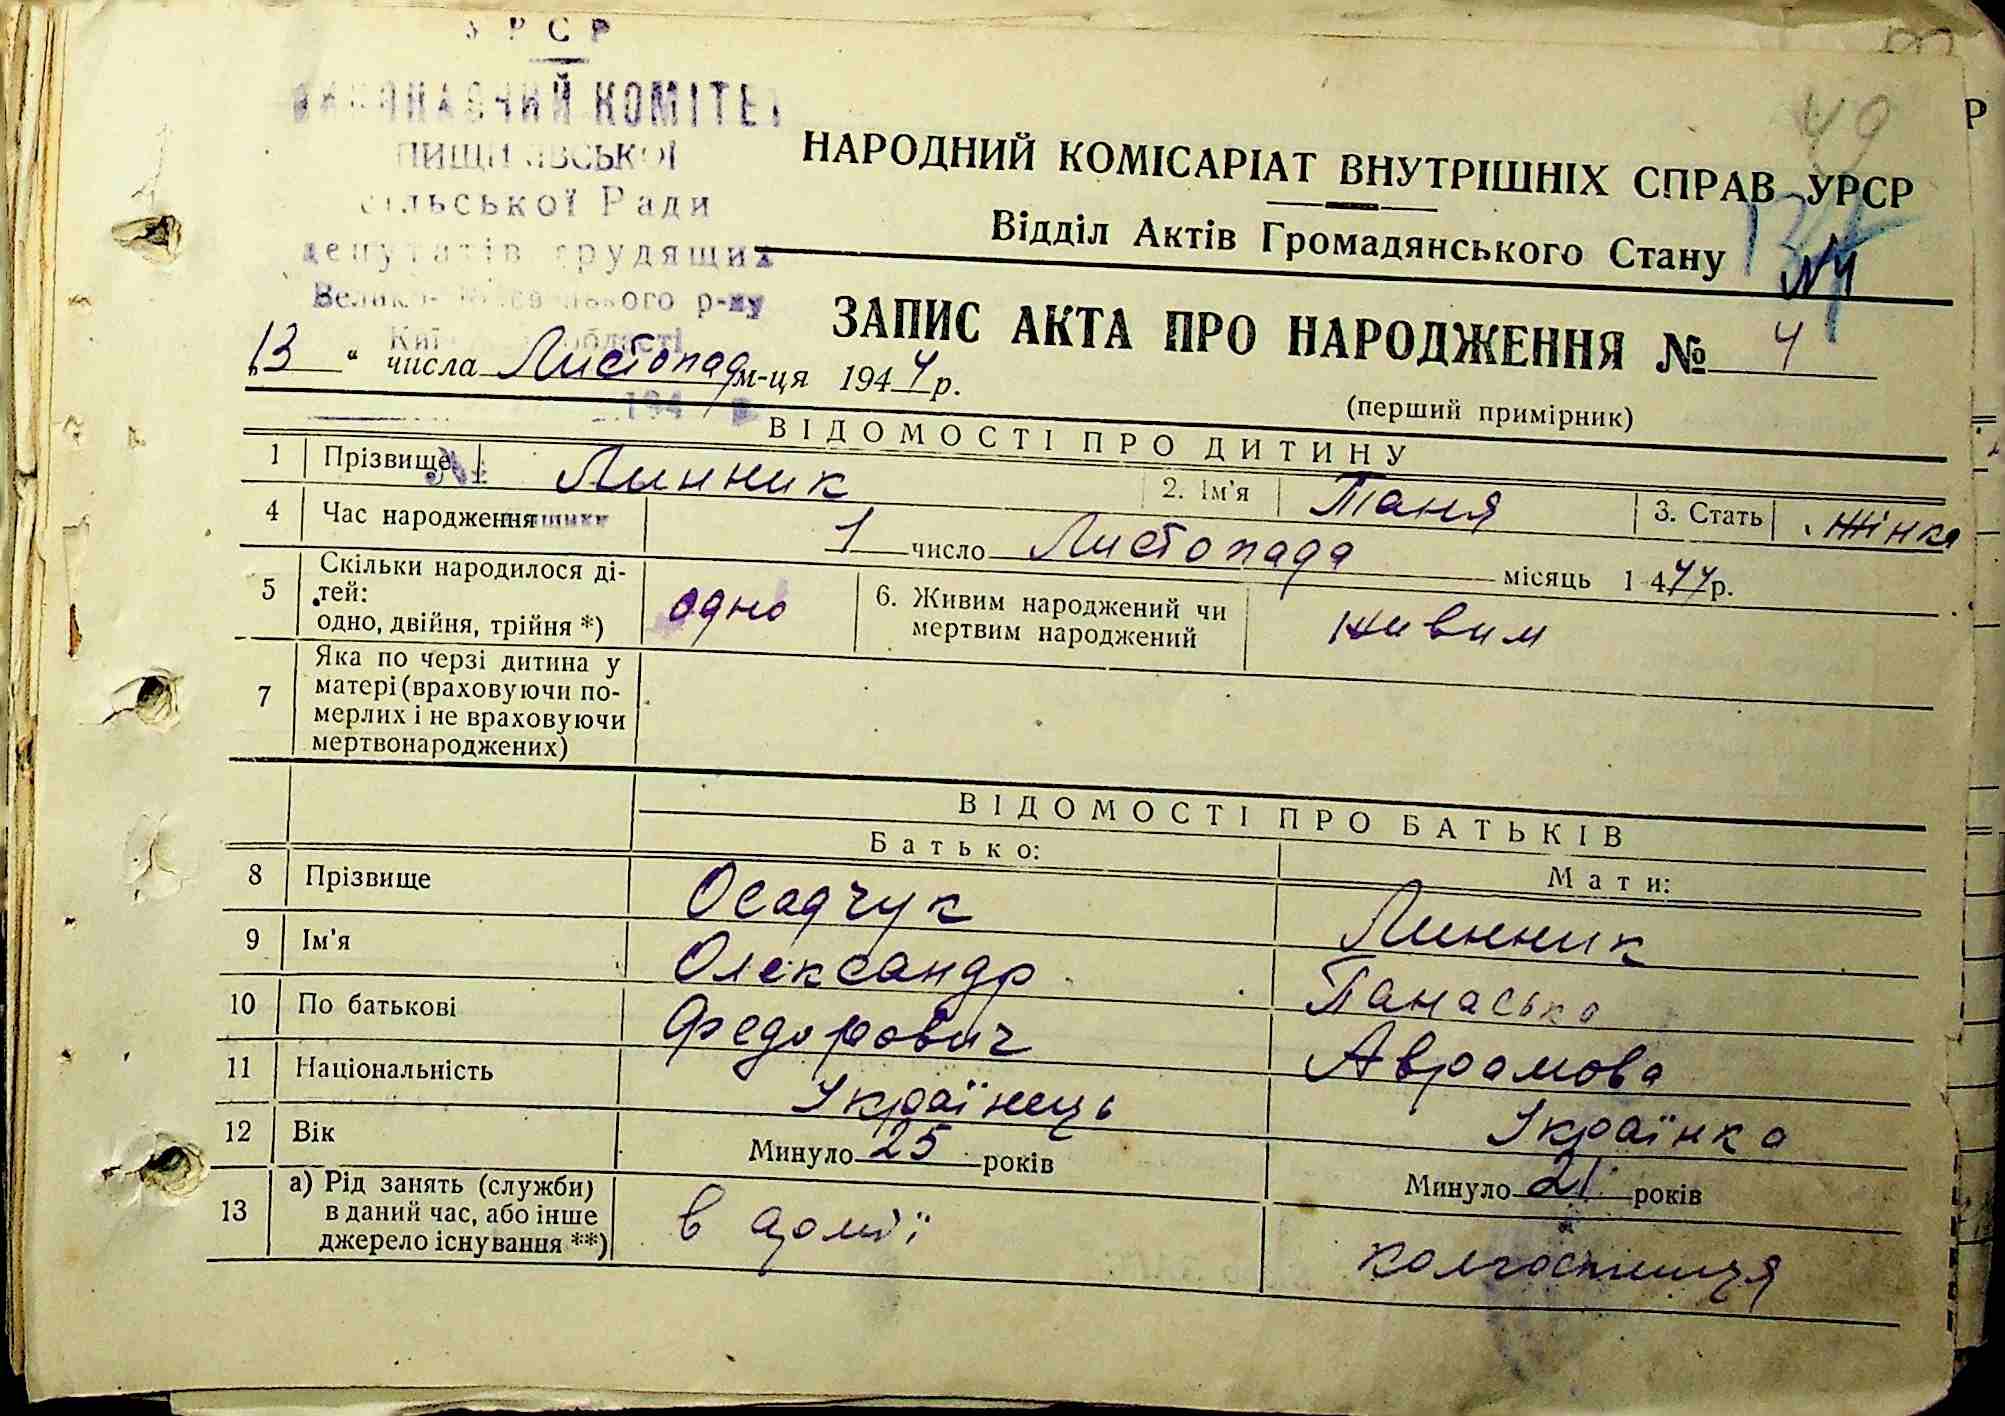 УРСР
ВИКОНАВЧИЙ КОМІТЕТ
сільської Ради
депутатів трудящих
р-ну
області
49
НАРОДНИЙ КОМІСАРІАТ ВНУТРІШНІХ СПРАВ УРСР
Відділ Актів Громадянського Стану
№4
ЗАПИС АКТА ПРО НАРОДЖЕННЯ № 4
„13 “ числа Листопад м-ця 1944 р.
(перший примірник)
194 р.
ВІДОМОСТІ ПРО ДИТИНУ
1 Прізвище Линник 2. Ім'я Таня 3. Стать Жінка
4 Час народження 1 число Листопада місяць 1 944 р.
5 Скільки народилося ді-
тей:
одно, двійня, трійня *) одно 6. Живим народжений чи
мертвим народжений живим
7 Яка по черзі дитина у
матері (враховуючи по-
мерлих і не враховуючи
мертвонароджених)
ВІДОМОСТІ ПРО БАТЬКІВ
Батько: Мати:
8 Прізвище Осадчук Линник
9 Ім'я Олександр Панаська
10 По батькові Федорович Аврамова
11 Національність Українець Українка
12 Вік Минуло 25 років Минуло 21 років
13 а) Рід занять (служби)
в даний час, або інше
джерело існування **) в армії колгоспниця